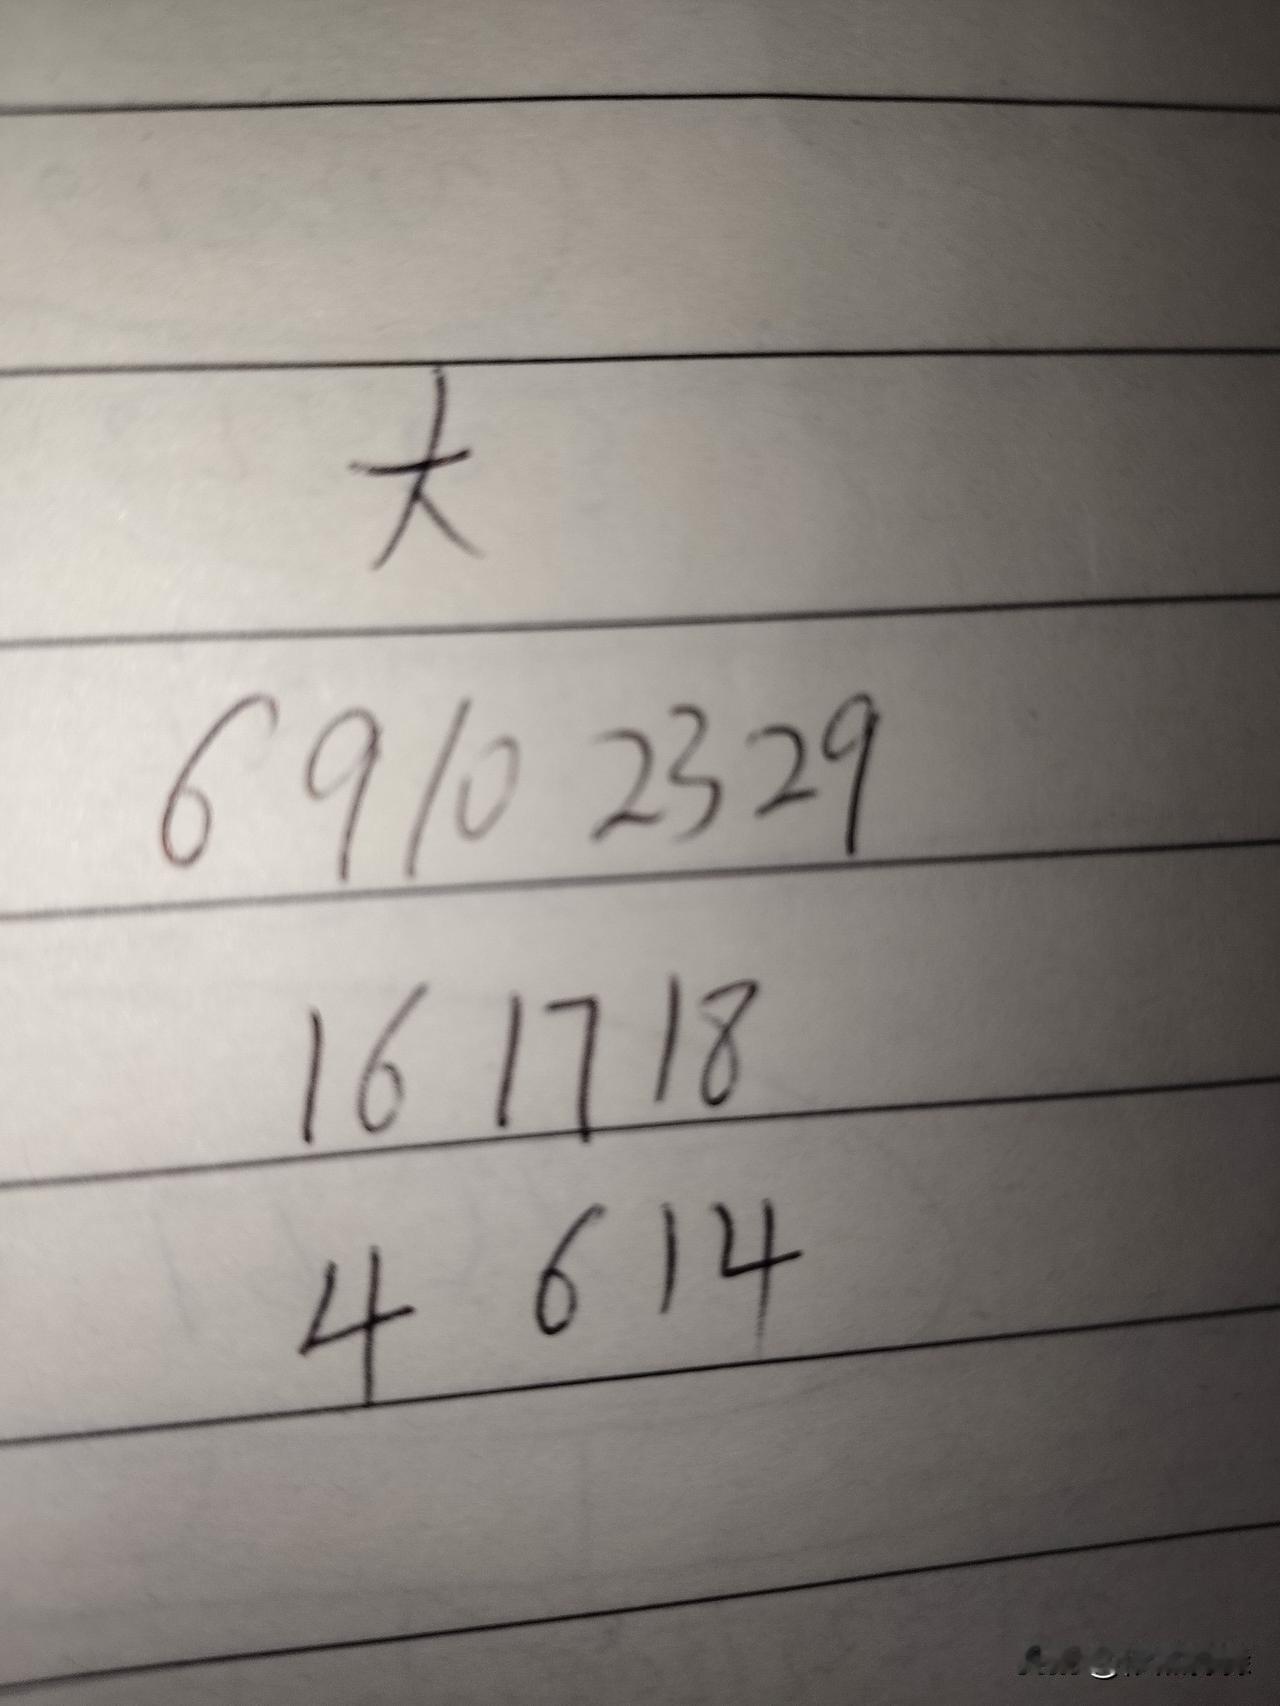 大
6 9 10 23 29
16 17 18
4 6 14